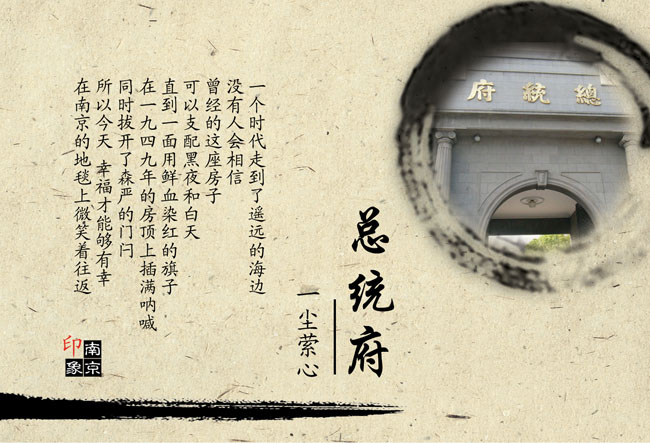 總統府
总统府
一尘萦心
一个时代走到了遥远的海边
没有人会相信
曾经的这座房子
可以支配黑夜和白天
直到一面用鲜血染红的旗子
在一九四九年的房顶上插满呐喊
同时拔开了森严的门闩
所以今天 幸福才能够有幸
在南京的地毯上微笑着往返
南京
印象